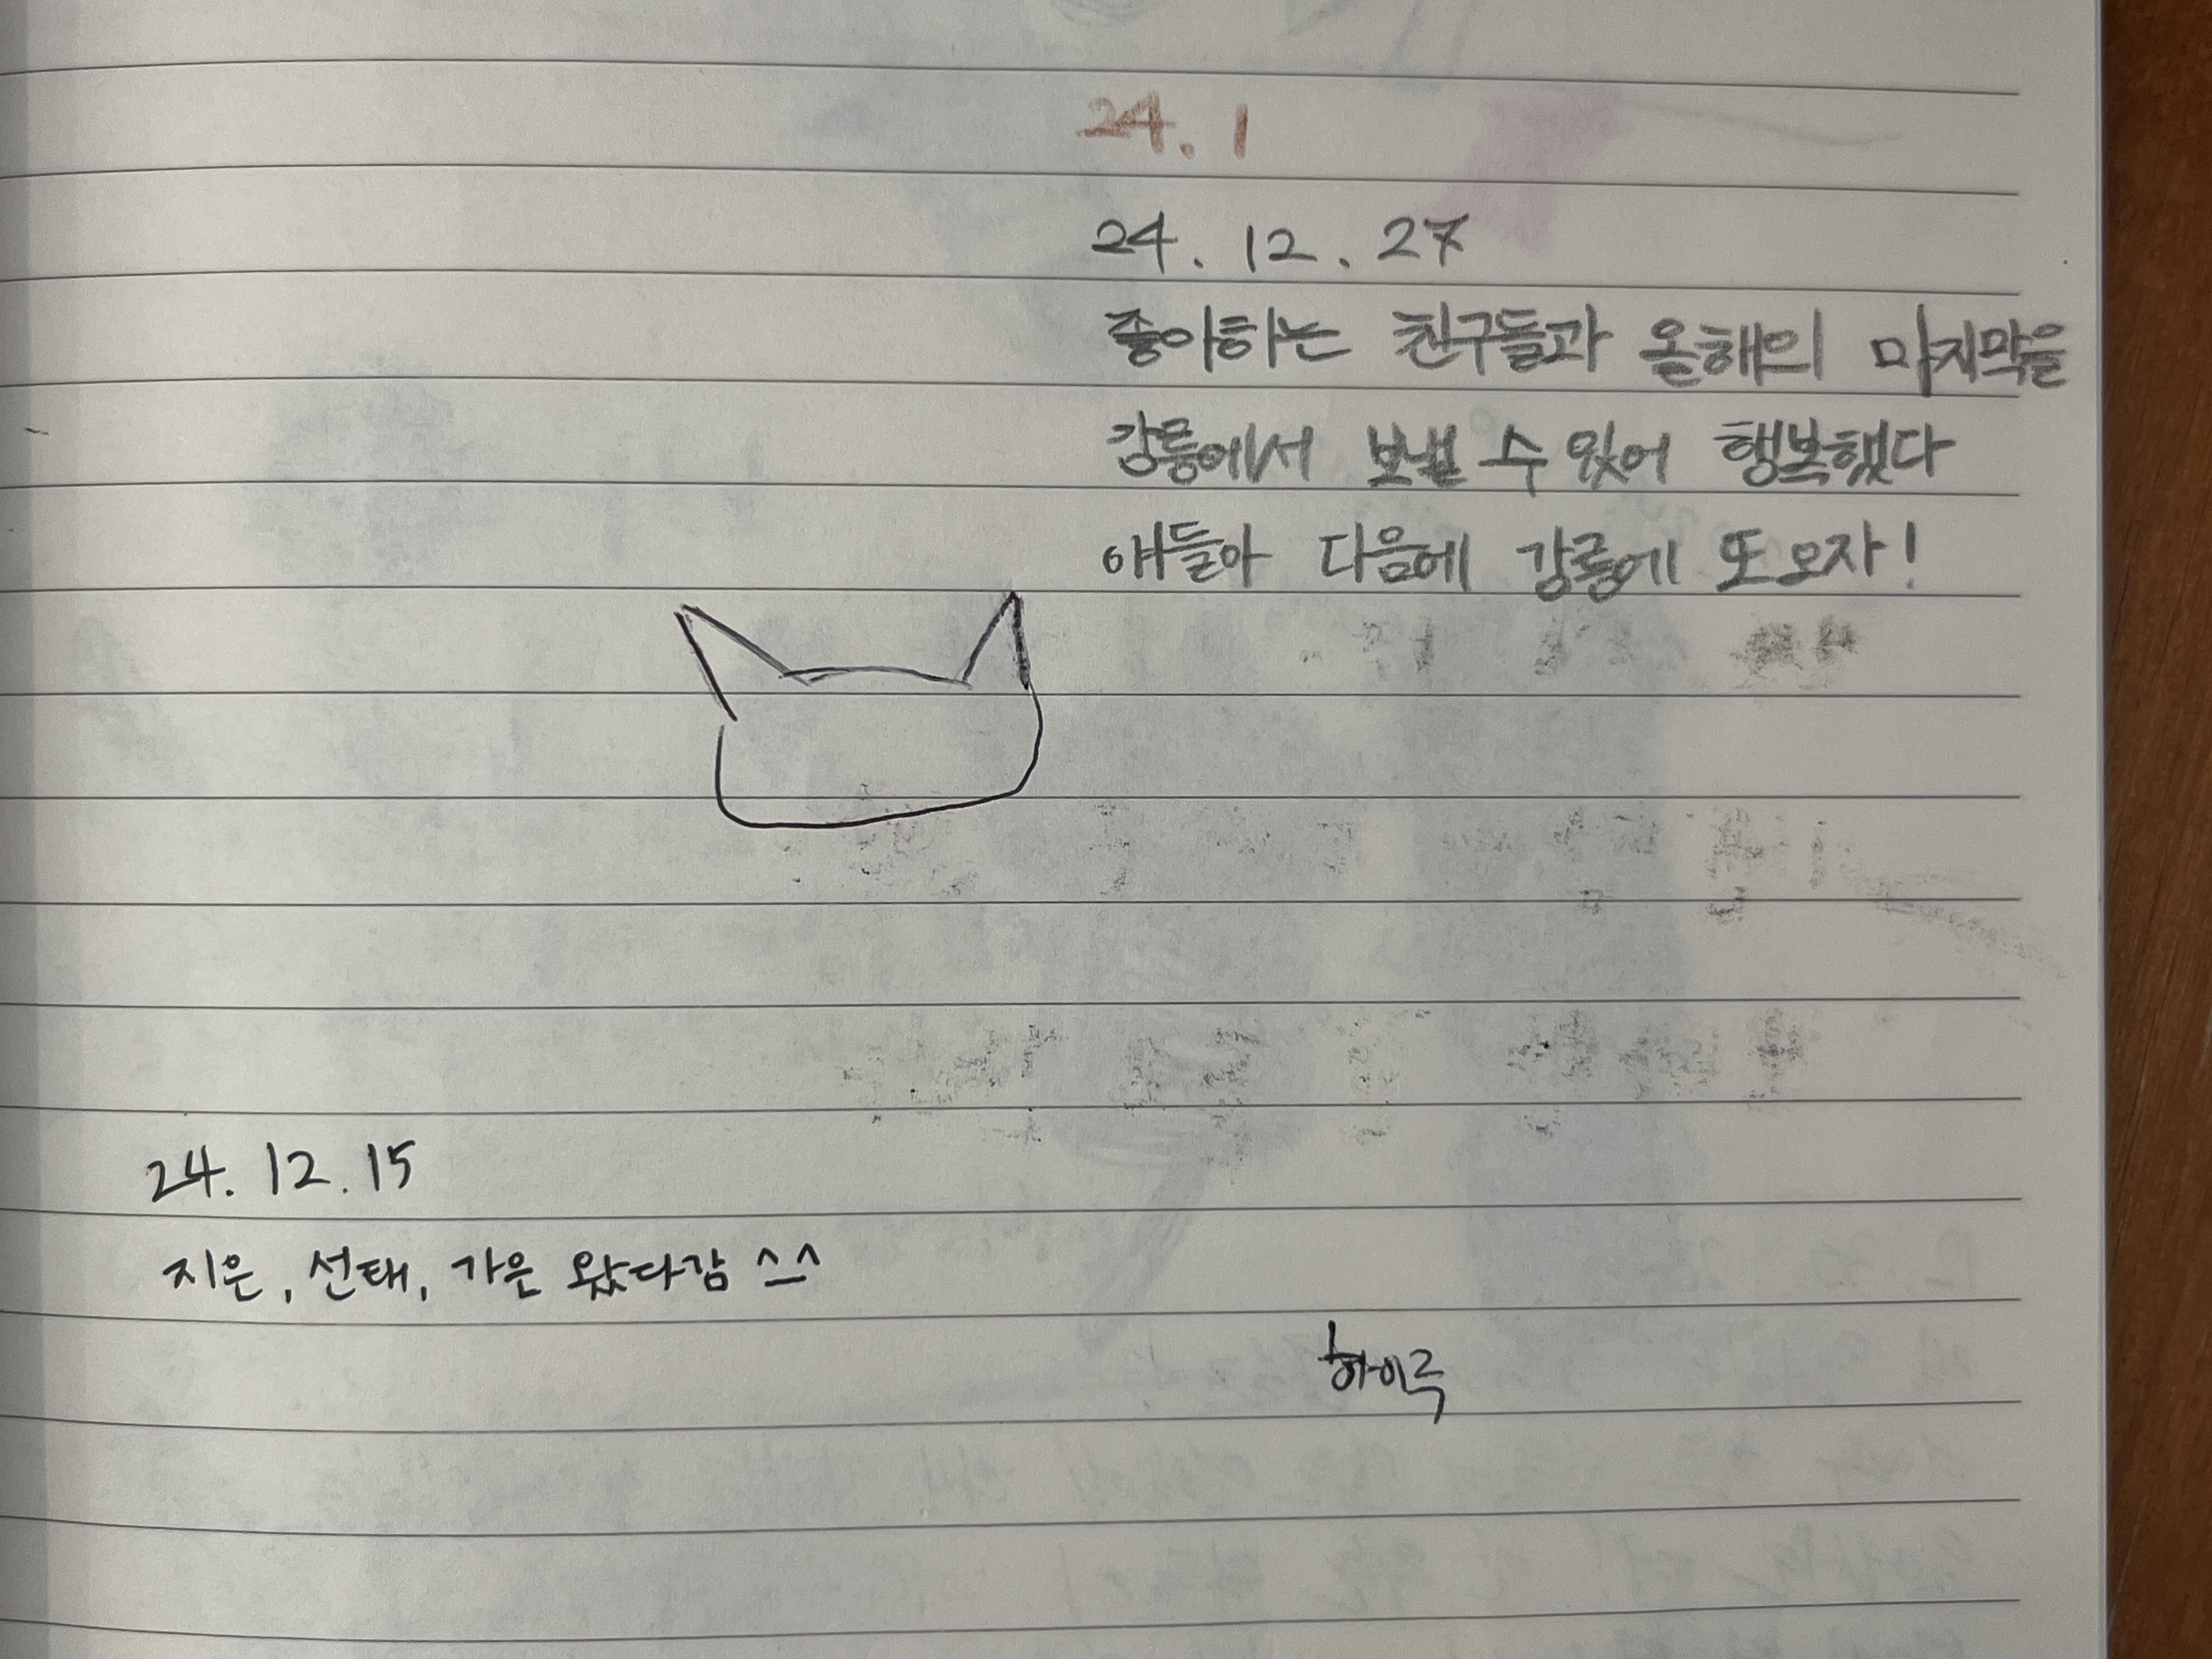 24. 1
24. 12. 27
좋아하는 친구들과 올해의 마지막을
강릉에서 보낼 수 있어 행복했다
얘들아 다음에 강릉에 또 오자!
24. 12. 15
지은, 선태, 가은 왔다감 ^_^
하이루